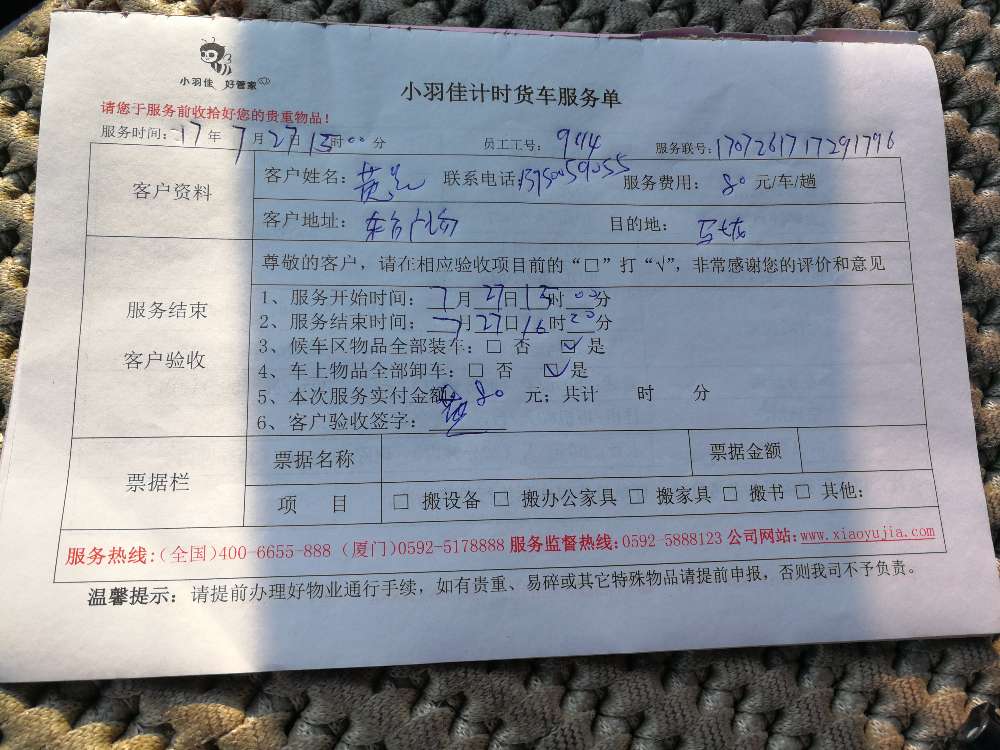 小羽佳 好管家
小羽佳计时货车服务单
请您于服务前收拾好您的贵重物品!
服务时间: 17年7月27日15时00分 员工工号: 944 服务联号: 1707261717291796
客户资料
客户姓名: 黄 联系电话: 13950059055 服务费用: 80 元/车/趟
客户地址: 目的地:
尊敬的客户，请在相应验收项目前的“□”打“√”，非常感谢您的评价和意见
服务结束
客户验收
1、服务开始时间: 7月27日15时00分
2、服务结束时间: 7月27日16时20分
3、候车区物品全部装车: □ 否 ☑ 是
4、车上物品全部卸车: □ 否 ☑ 是
5、本次服务实付金额 80 元; 共计 时 分
6、客户验收签字:
票据栏
票据名称 票据金额
项 目 □ 搬设备 □ 搬办公家具 □ 搬家具 □ 搬书 □ 其他:
服务热线:(全国)400-6655-888 (厦门)0592-5178888 服务监督热线:0592-5888123 公司网站:www.xiaoyujia.com
温馨提示: 请提前办理好物业通行手续，如有贵重、易碎或其它特殊物品请提前申报，否则我司不予负责。